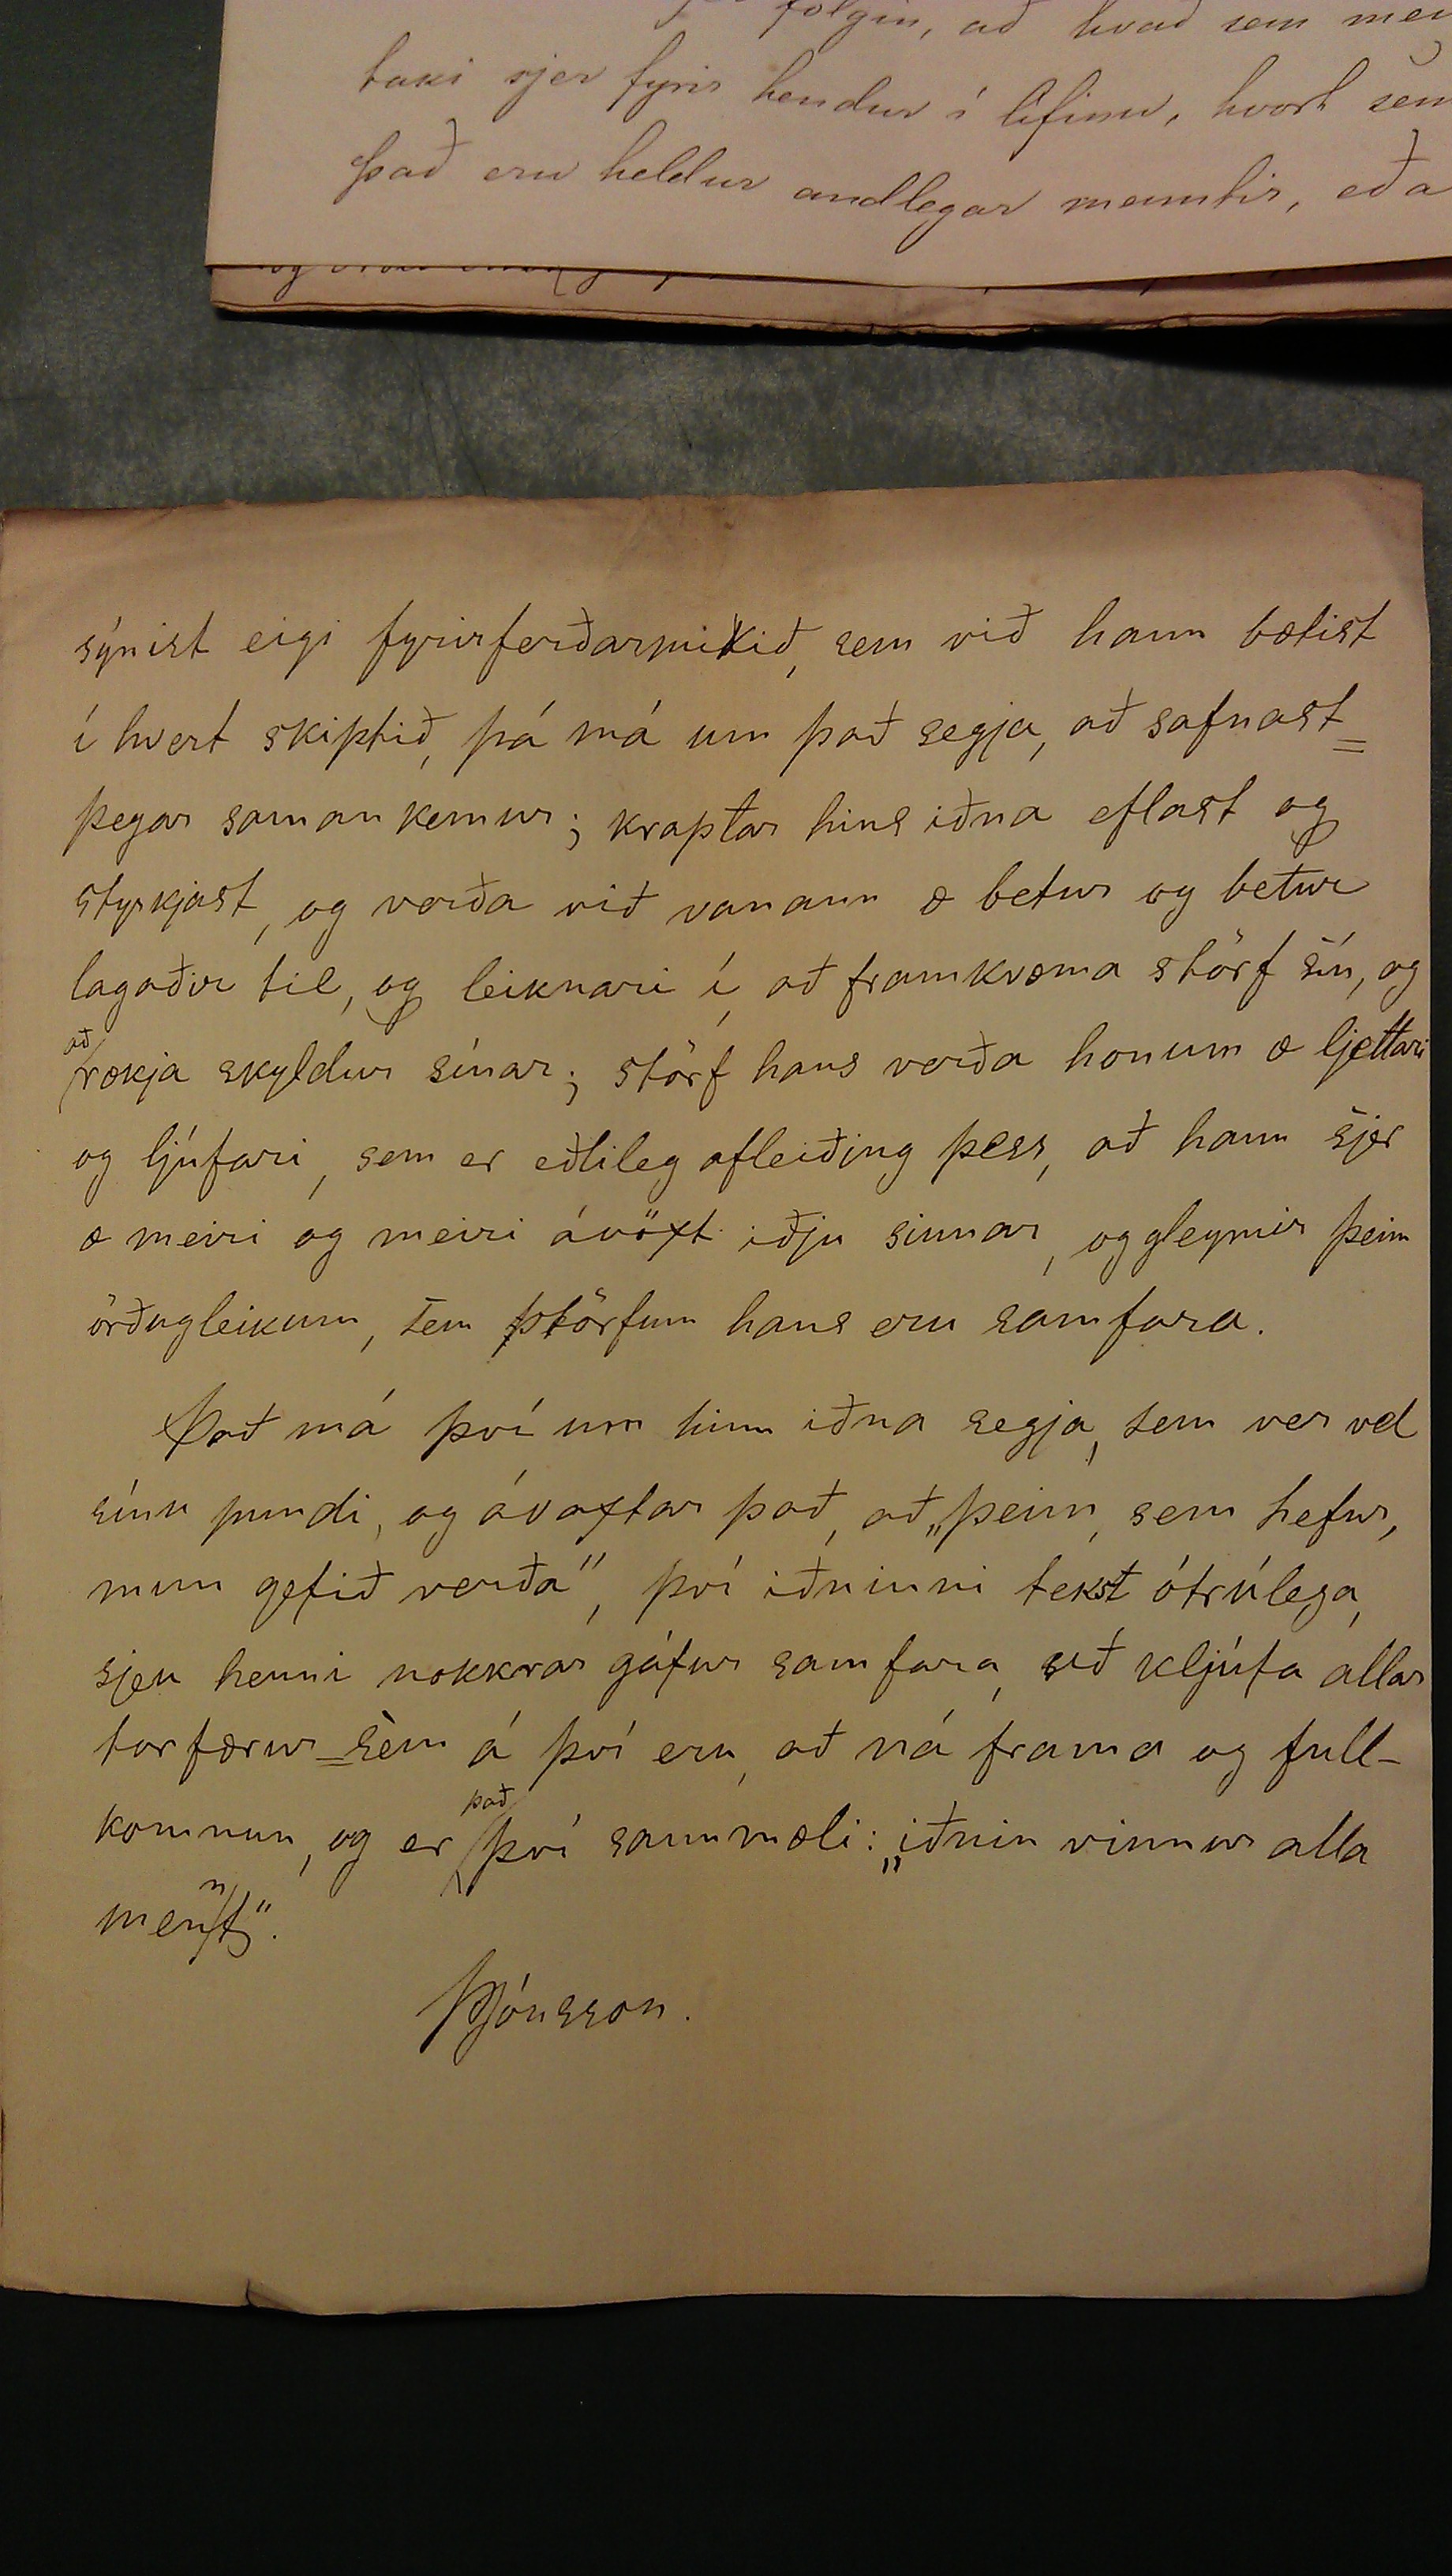 fólgin, að hvað sem
taki sjer fyrir hendur í lífinu, hvort sem
það eru heldur andlegar menntir, eða
sýnist eigi fyrirferðarmikið, sem við hann bætist
í hvert skiptið, þá má um það segja, að safnast
þegar saman kemur; kraptar hins iðna eflast og
styrkjast, og verða við vanann æ betur og betur
lagaðir til, og leiknari í, að framkvæma störf sín, og
að
rækja skyldur sínar; störf hans verða honum æ ljettari
og ljúfari, sem er eðlileg afleiðing þess, að hann sjer
æ meiri og meiri ávöxt iðju sinnar, og gleymir þeim
örðugleikum, sem störfum hans eru samfara.
Það má því um hinn iðna segja, sem ver vel
sínu pundi, og ávaxtar það, að „þeim, sem hefur,
mun gefið verða“, því iðninni tekst ótrúlega,
sjeu henni nokkrar gáfur samfara, að kljúfa allar
torfærur sem á því eru, að ná frama og full-
það
komnun, og er því sannmæli: „iðnin vinnur alla
mennt“.
ÞJónsson.